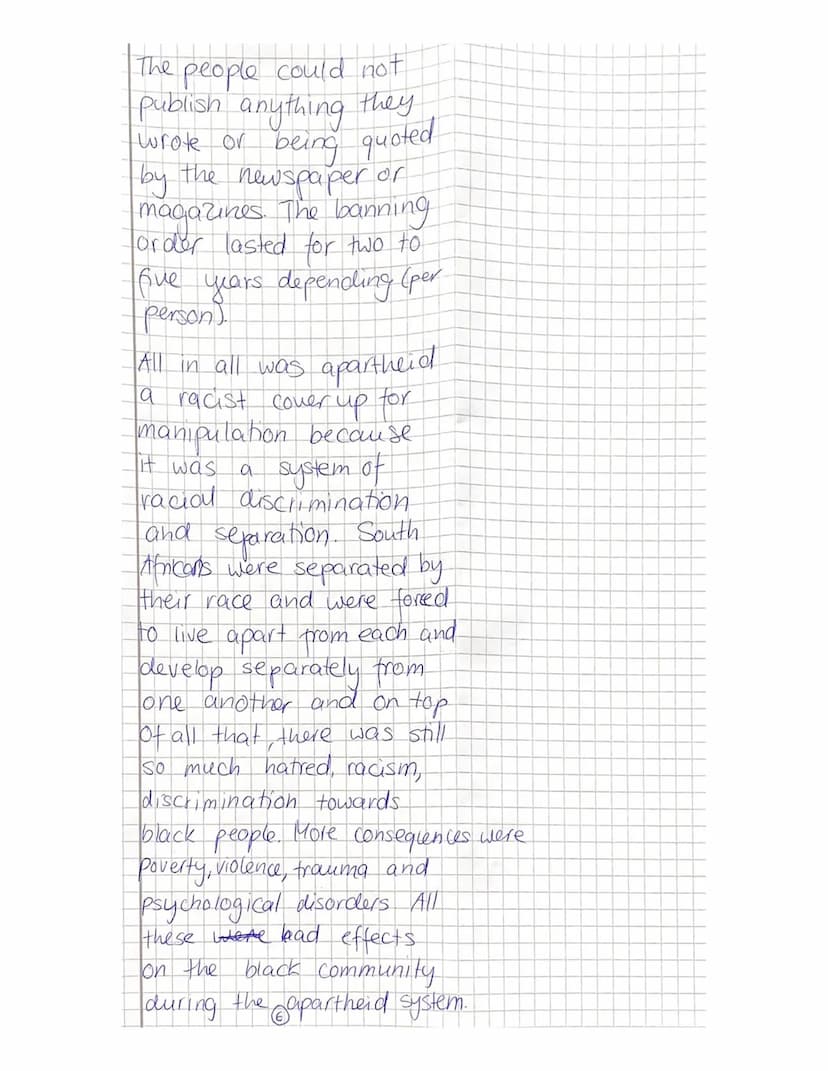 The people could not
publish anything they
wrote or being quoted
by the newspaper or
magazines. The banning
order lasted for two to
five years depending (per
person).
All in all was apartheid
a racist cover up for
manipulation because
it was a system of
racial discrimination
and separation. South
Africans were separated by
their race and were forced
to live apart from each and
develop separately from
one another and on top
of all that, there was still
so much hatred, racism,
discrimination towards
black people. More conseqences were
poverty, violence, trauma and
psychological disorders. All
these were had effects
on the black community
during the apartheid system.
6